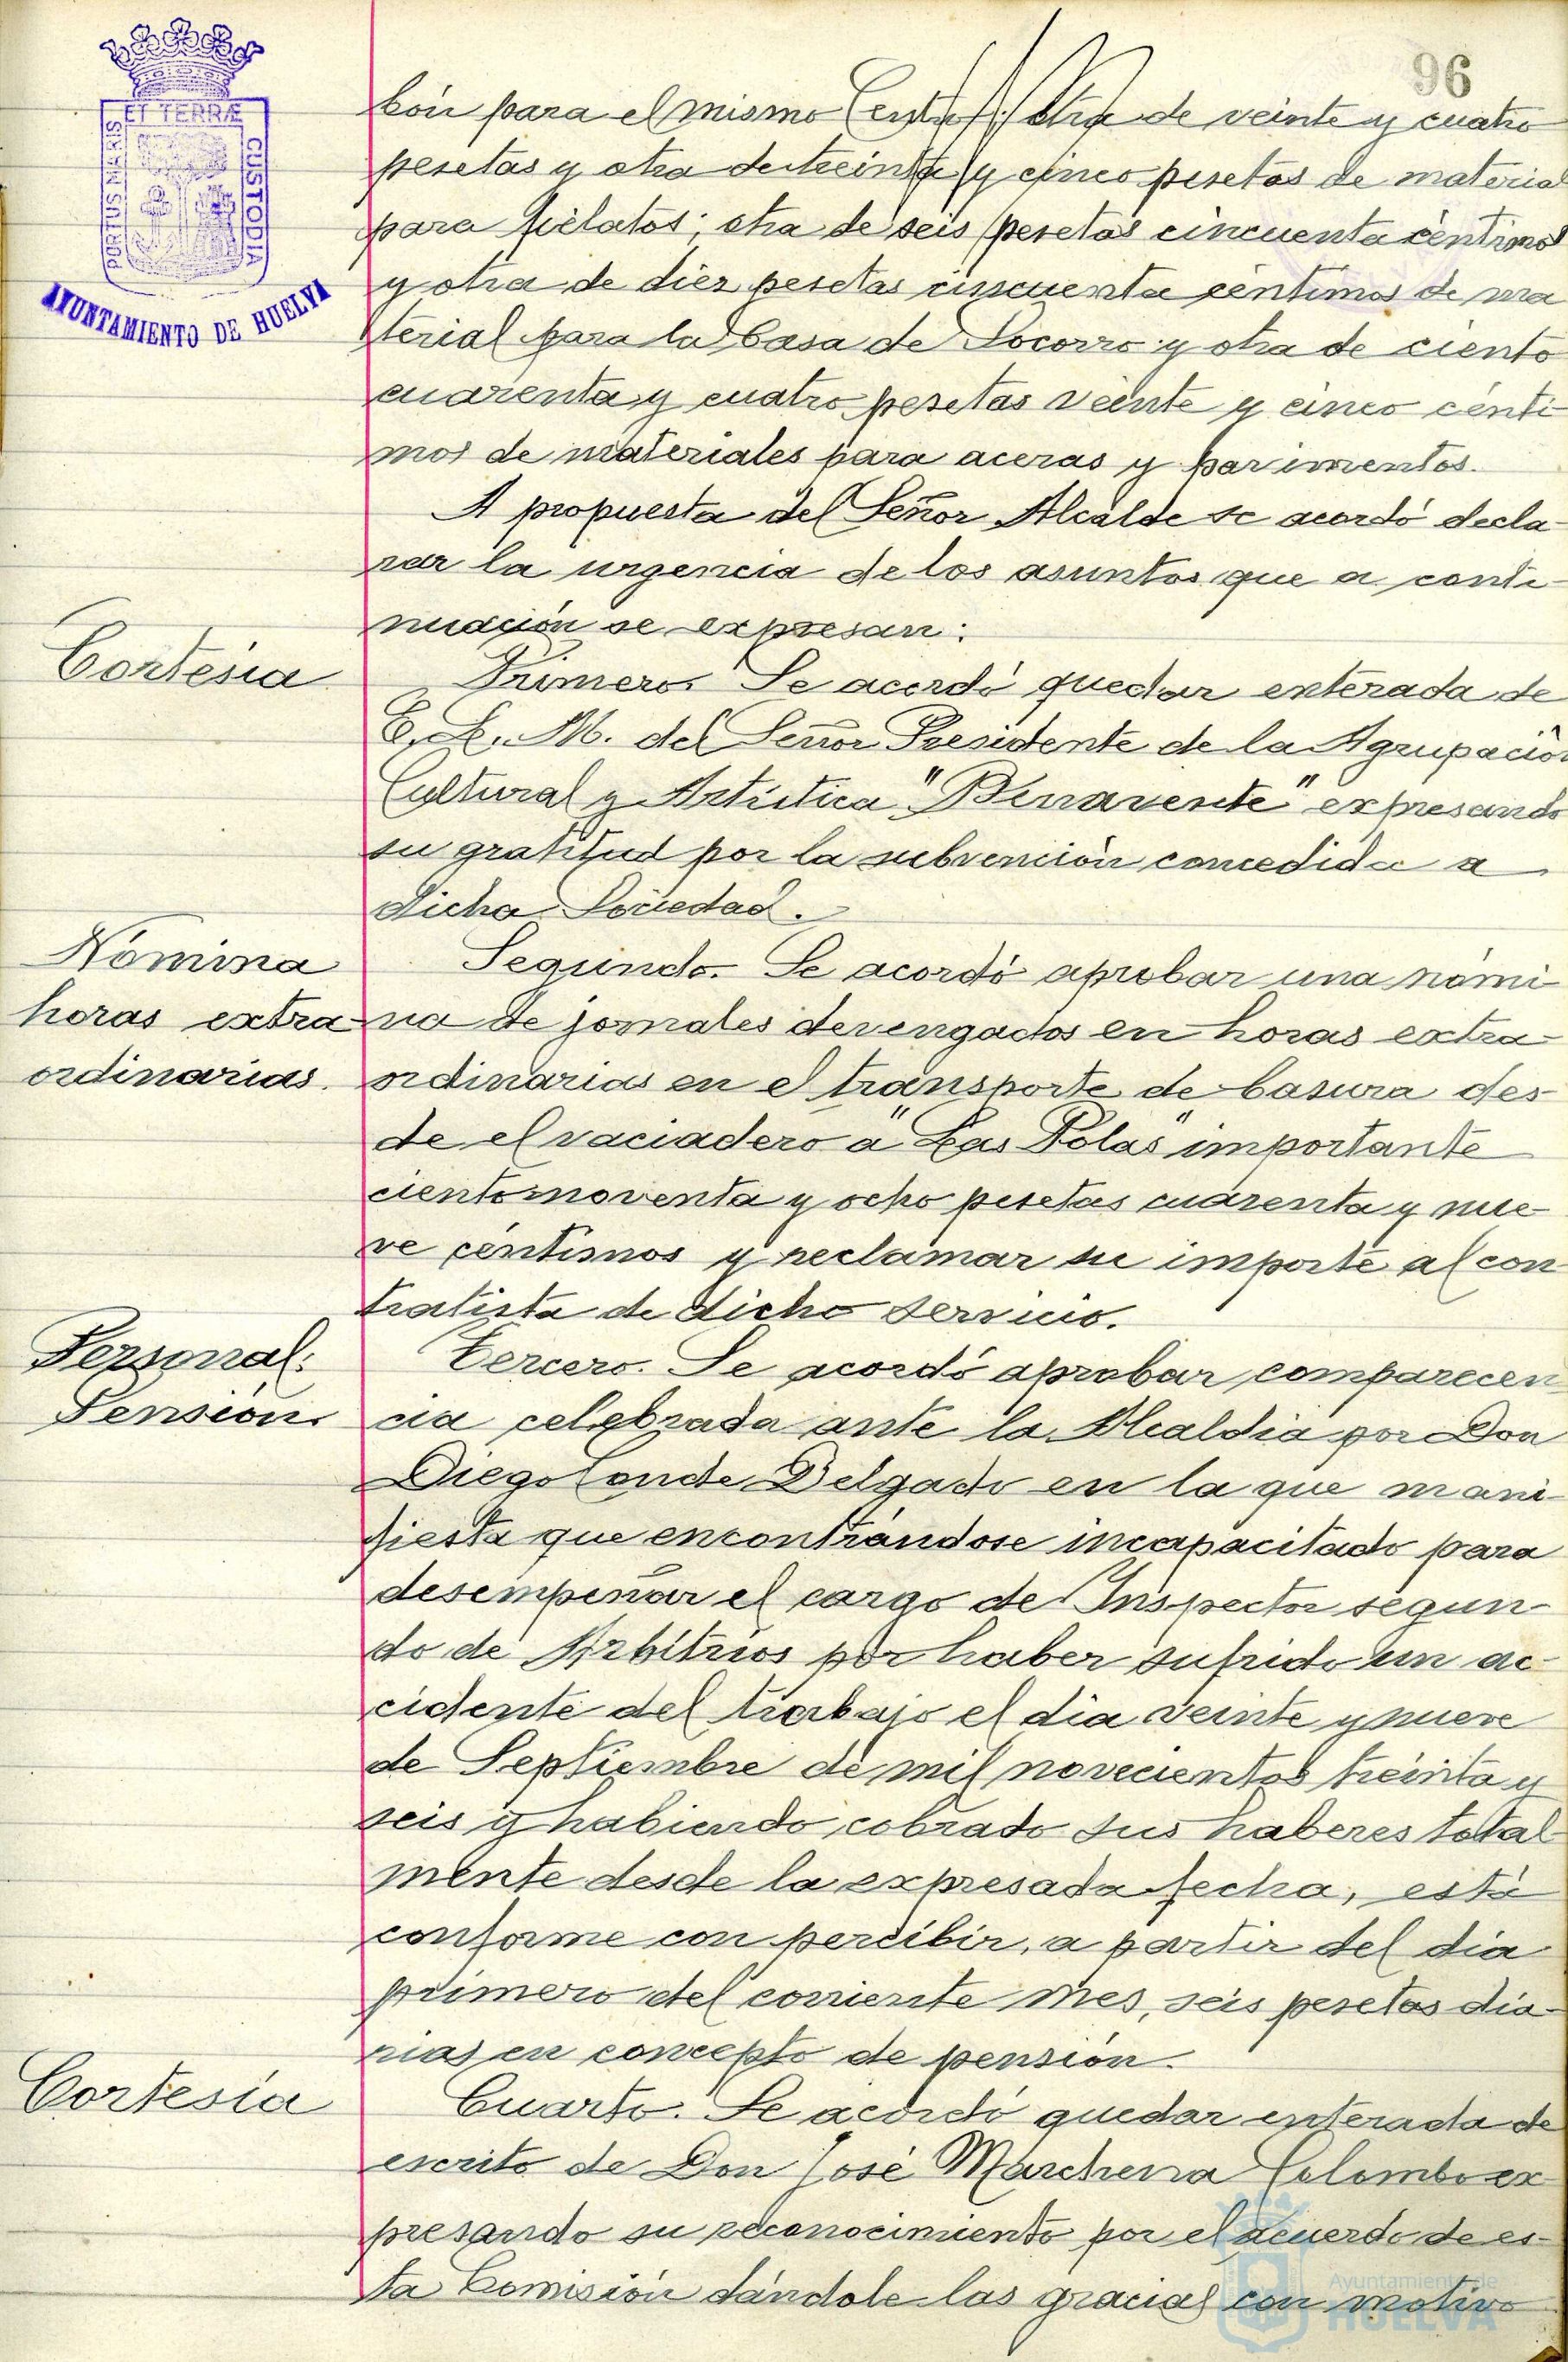 96
PORTUS MARIS
ET TERRÆ
CUSTODIA
AYUNTAMIENTO DE HUELVA
bón para el mismo Centro; otra de veinte y cuatro
pesetas y otra de treinta y cinco pesetas de material
para fielatos; otra de seis pesetas cincuenta céntimos
y otra de diez pesetas cincuenta céntimos de ma
terial para la Casa de Socorro y otra de ciento
cuarenta y cuatro pesetas veinte y cinco cénti
mos de materiales para aceras y pavimentos.
A propuesta del Señor Alcalde se acordó decla-
rar la urgencia de los asuntos que a conti-
nuación se expresan:
Cortesía
Primero. Se acordó quedar enterada de
B. L. M. del Señor Presidente de la Agrupación
Cultural y Artística "Benavente" expresando
su gratitud por la subvención concedida a
dicha Sociedad.
Nómina
horas extra
ordinarias.
Segundo. Se acordó aprobar una nómi
na de jornales devengados en horas extra-
ordinarias en el transporte de basura des-
de el vaciadero a "Las Polas" importante
ciento noventa y ocho pesetas cuarenta y nue-
ve céntimos y reclamar su importe al con
tratista de dicho servicio.
Personal:
Pensión.
Tercero. Se acordó aprobar comparecen
cia celebrada ante la Alcaldía por Don
Diego Conde Delgado en la que mani-
fiesta que encontrándose incapacitado para
desempeñar el cargo de Inspector segun-
do de Arbitrios por haber sufrido un ac-
cidente del trabajo el día veinte y nueve
de Septiembre de mil novecientos treinta y
seis y habiendo cobrado sus haberes total-
mente desde la expresada fecha, está
conforme con percibir, a partir del día
primero del corriente mes, seis pesetas dia-
rias en concepto de pensión.
Cortesía
Cuarto. Se acordó quedar enterada de
escrito de Don José Marchena Colombo ex
presando su reconocimiento por el acuerdo de es-
ta Comisión dándole las gracias con motivo
Ayuntamiento de
HUELVA